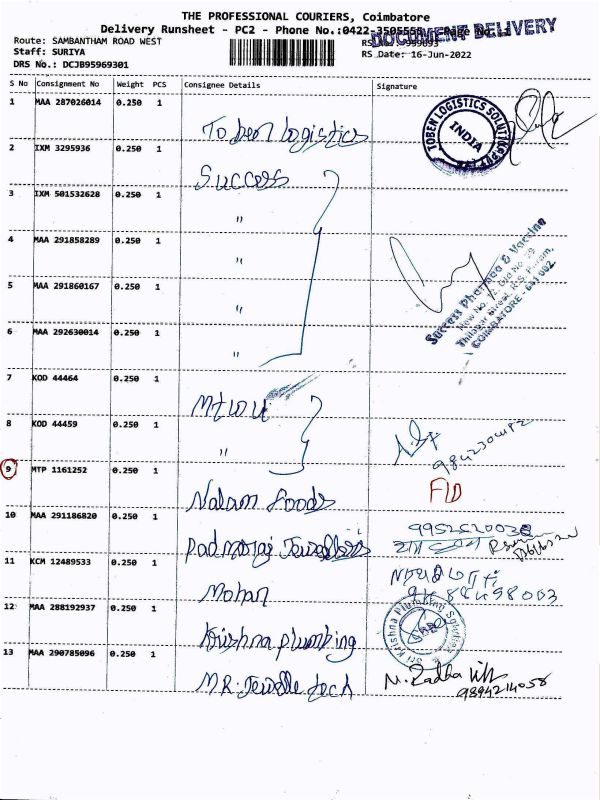 THE PROFESSIONAL COURIERS, Coimbatore
Delivery Runsheet - PC2 - Phone No.:0422-3505555
DOCUMENT DELIVERY
Route: SAMBANTHAM ROAD WEST
Staff: SURIYA
RS Date: 16-Jun-2022
DRS No.: DCJB95969301
S No Consignment No Weight PCS Consignee Details Signature
1 MAA 287026014 0.250 1
Toben Logistics
TOBEN LOGISTICS SOLUTIONS
INDIA
2 IXM 3295936 0.250 1
Success
3 IXM 501532628 0.250 1
"
4 MAA 291858289 0.250 1
"
Success Pharma & Vaccine
COIMBATORE - 641 002.
5 MAA 291860167 0.250 1
"
6 MAA 292630014 0.250 1
"
7 KOD 44464 0.250 1
8 KOD 44459 0.250 1
"
9 MTP 1161252 0.250 1
Nalam Foods
10 MAA 291186820 0.250 1
11 KCM 12489533 0.250 1
Mohan
12 MAA 288192937 0.250 1
Krishna plumbing
Sri Krishna Plumbing Solution
13 MAA 290785096 0.250 1
9894214058